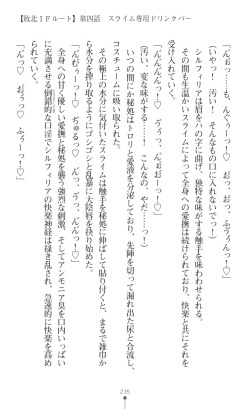 【敗北ＩＦルート】第四話　スライム専用ドリンクバー
「んおぉっ……も、んぐぅーっ！♡　おっ、おっ、ふぅぅんっ♡」
（いやっ！　汚い！　そんなの口に含めないのぉっ！）
シルフィリアは眉をハの字に曲げ、独特な味がする触手を味わわせられる。
その間も生温かいスライムによって全身への愛撫は続けられており、快楽と共にそれを
受け入れていく。
「んっ！♡　んんんんーっ！♡　うぅっ、んぉおおーっ！♡」
（汚い、変な味がする……！　こんなの、やだ……っ！）
いつの間にか秘処にトロリと愛液を分泌しており、先陣を切って漏れ出た尿と合流し、
コスチュームに吸い取られた。
その二種の水分に気付いたスライムは触手を秘処に伸ばして貼り付くと、まるで雑巾か
ら水を搾り出すようにゴシゴシと乱暴に大陰唇を抉り始めた。
「んむぅーっ！♡　ぢゅるっ♡　んっ、うっ、んんんんーっ！♡」
全身への甘く優しい愛撫と秘処を襲う強烈な刺激、そしてアンモニア臭を口内いっぱい
に充満させる倒錯的な口淫でシルフィリアの快楽神経は掻き乱され、急速的に快楽を高め
られていく。
「んっ♡　おっ♡　おっっ♡　ふぅーっ！♡」
235